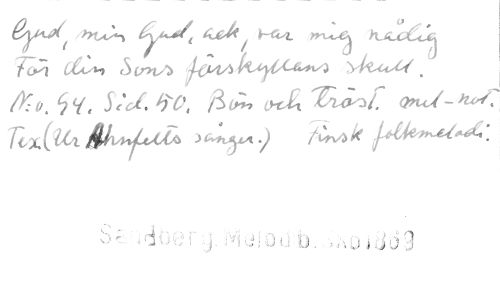 Gud, min Gud, ack, var mig nådig
För din Sons förskyllans skull.
N:o. 94. Sid. 50. Bön och tröst. mel-not.
Tex. (Ur Ahnfelts sånger.) Finsk folkmelodi.
Sandberg. Melodib. 1869